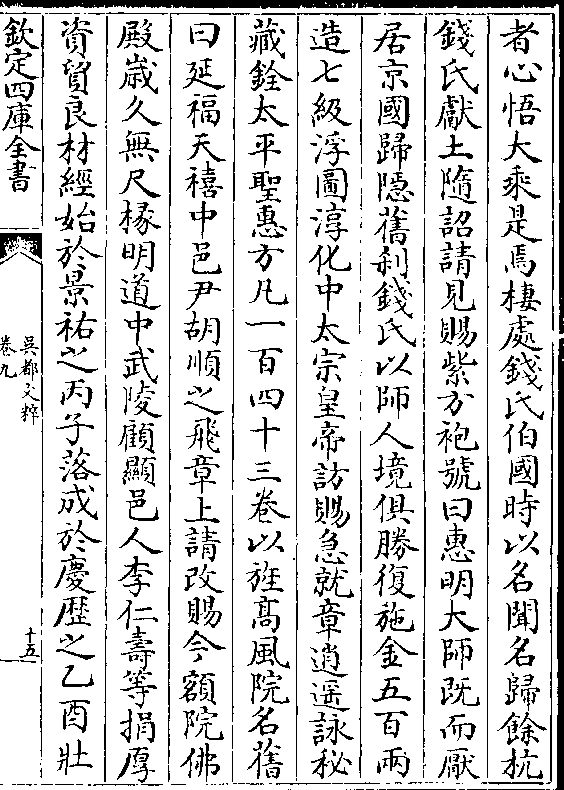 者心悟大乘是焉棲處錢氏伯國時以名聞名歸餘杭
錢氏獻土隨詔請見賜紫方袍號曰惠明大師既而厭
居京國歸隱舊刹錢氏以師人境俱勝復施金五百兩
造七級浮圖淳化中太宗皇帝訪賜急就章逍遥詠秘
藏銓太平聖惠方凡一百四十三卷以旌髙風院名舊
曰延福天禧中邑尹胡順之飛章上請改賜今額院佛
殿歳久無尺椽明道中武陵顧顯邑人李仁壽等捐厚
資貿良材經始於景祐之丙子落成於慶歴之乙酉壯
欽定四庫全書
吳都文粹
卷九
十五